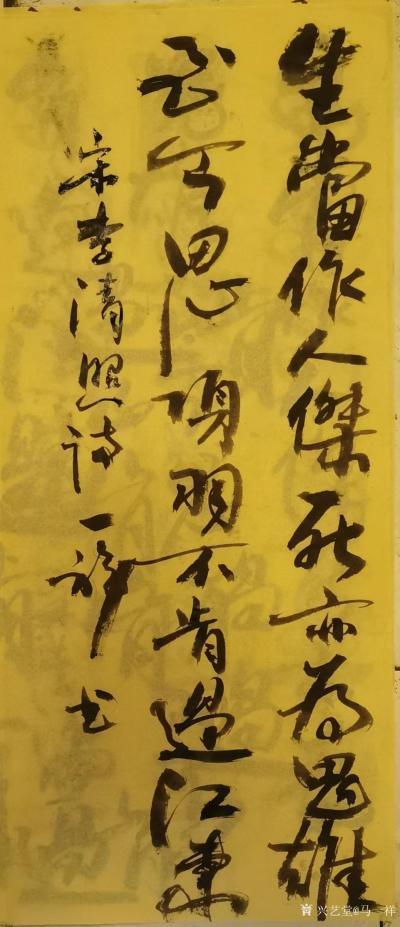 生當作人傑死亦為鬼雄
至今思項羽不肯過江東
宋李清照詩一祥書
兴艺堂@马一祥